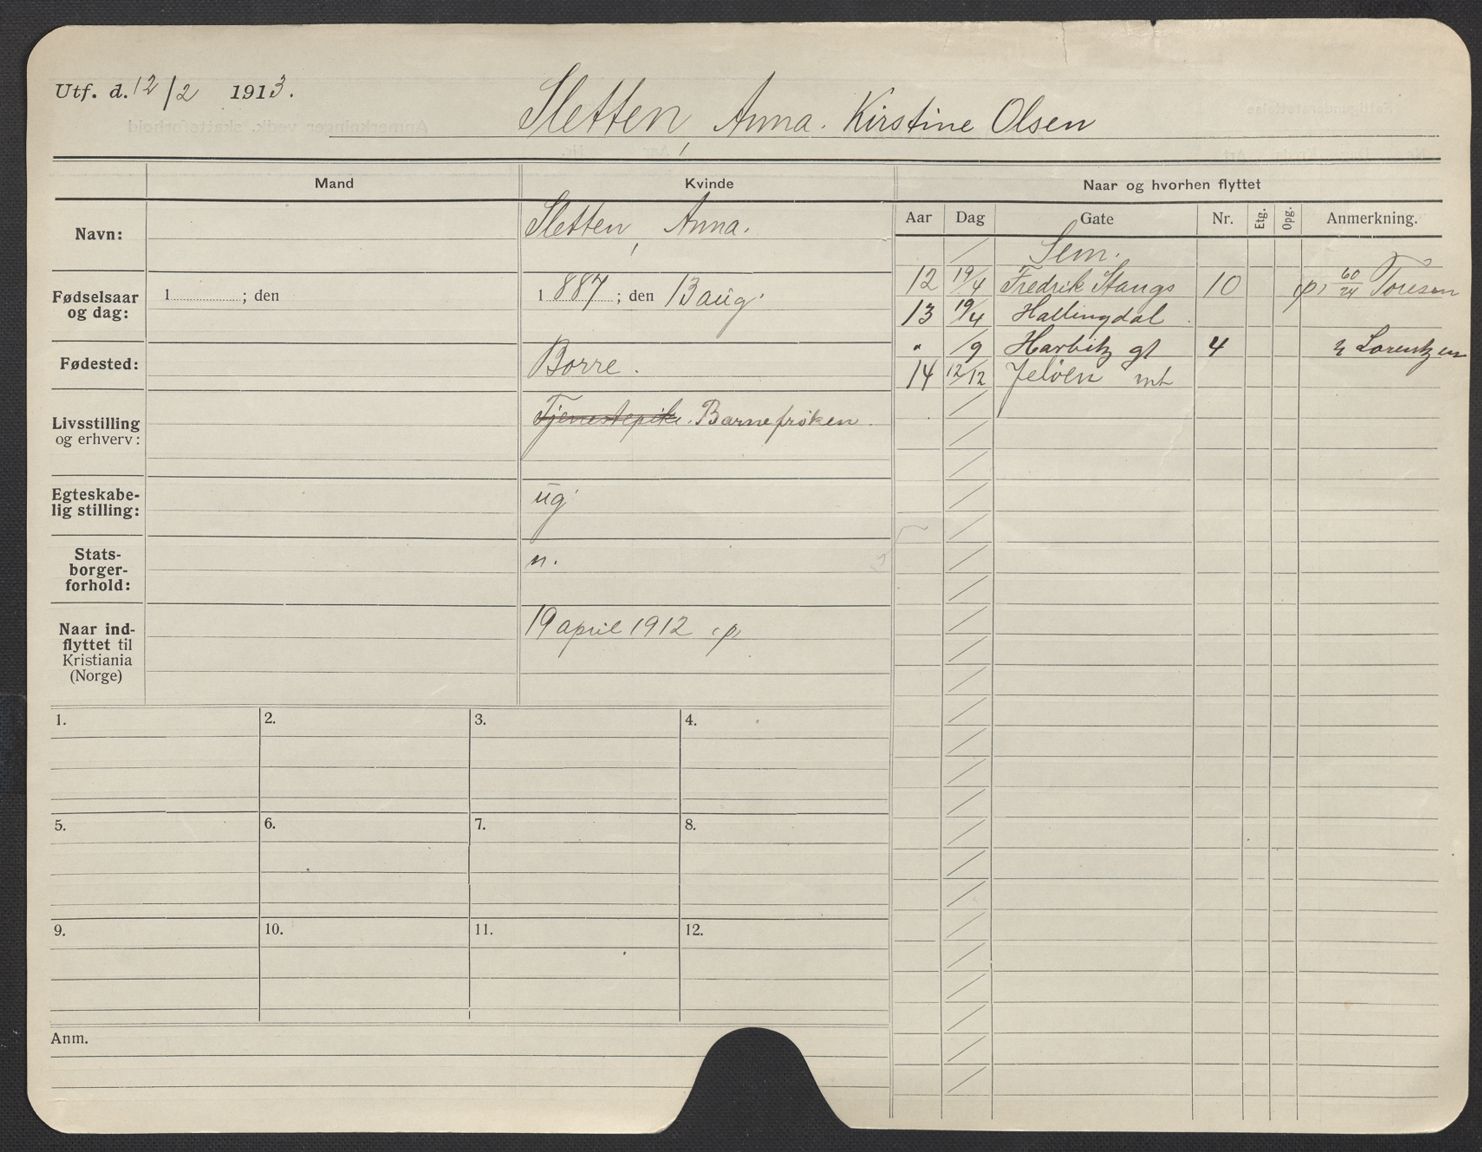 Utf. d. 12/2 1913.
Sletten, Anna. Kirstine Olsen
Mand
Kvinde
Naar og hvorhen flyttet
Navn:
Sletten, Anna.
Fødselsaar og dag:
1 ; den
1887 ; den 13 aug.
Fødested:
Borre.
Livsstilling og erhverv:
Tjenestepike. Barnefrøken.
Egteskabe-
lig stilling:
ug.
Stats-
borger-
forhold:
n.
Naar ind-
flyttet til
Kristiania
(Norge)
19 april 1912
Aar Dag Gate Nr. Etg. Opg. Anmerkning.
/ Sem.
12 19/4 Fredrik Stangs 10 60/24 Toresen
13 19/4 Hallingdal
" /9 Harbitz gt 4 Lorentzen
14 12/12 Jeløen mt
1. 2. 3. 4.
5. 6. 7. 8.
9. 10. 11. 12.
Anm.